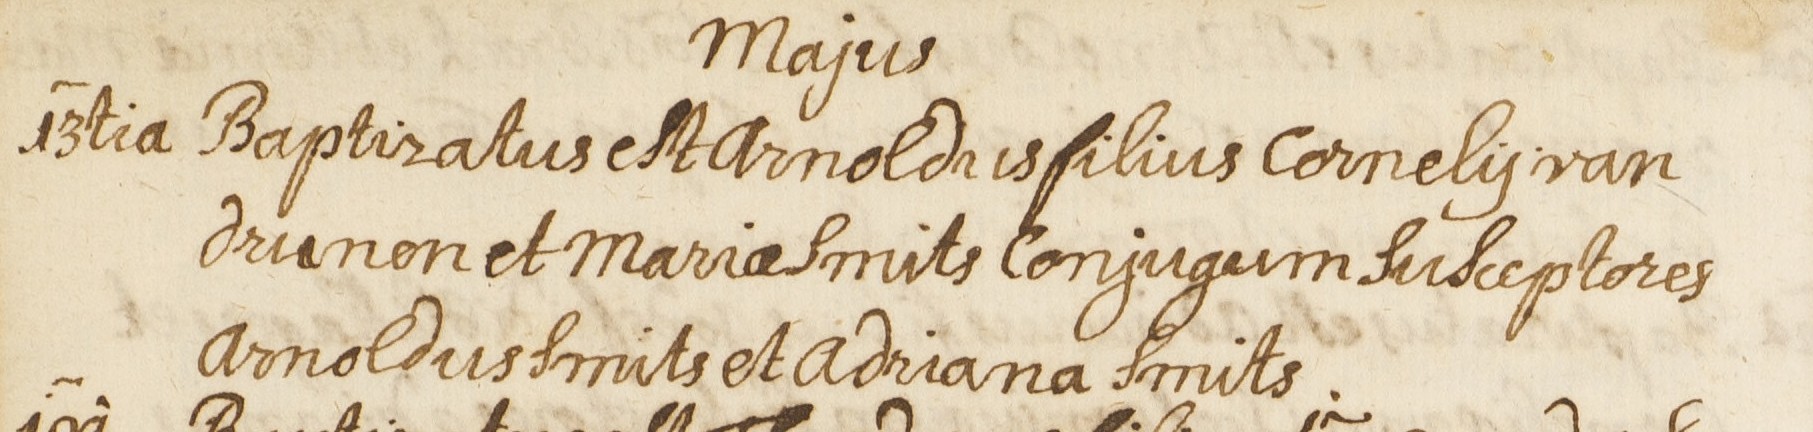 Majus
13tia Baptizatus est Arnoldus filius Cornelij van
drunen et Mariæ Smits Conjugum Susceptores
Arnoldus Smits et Adriana Smits.